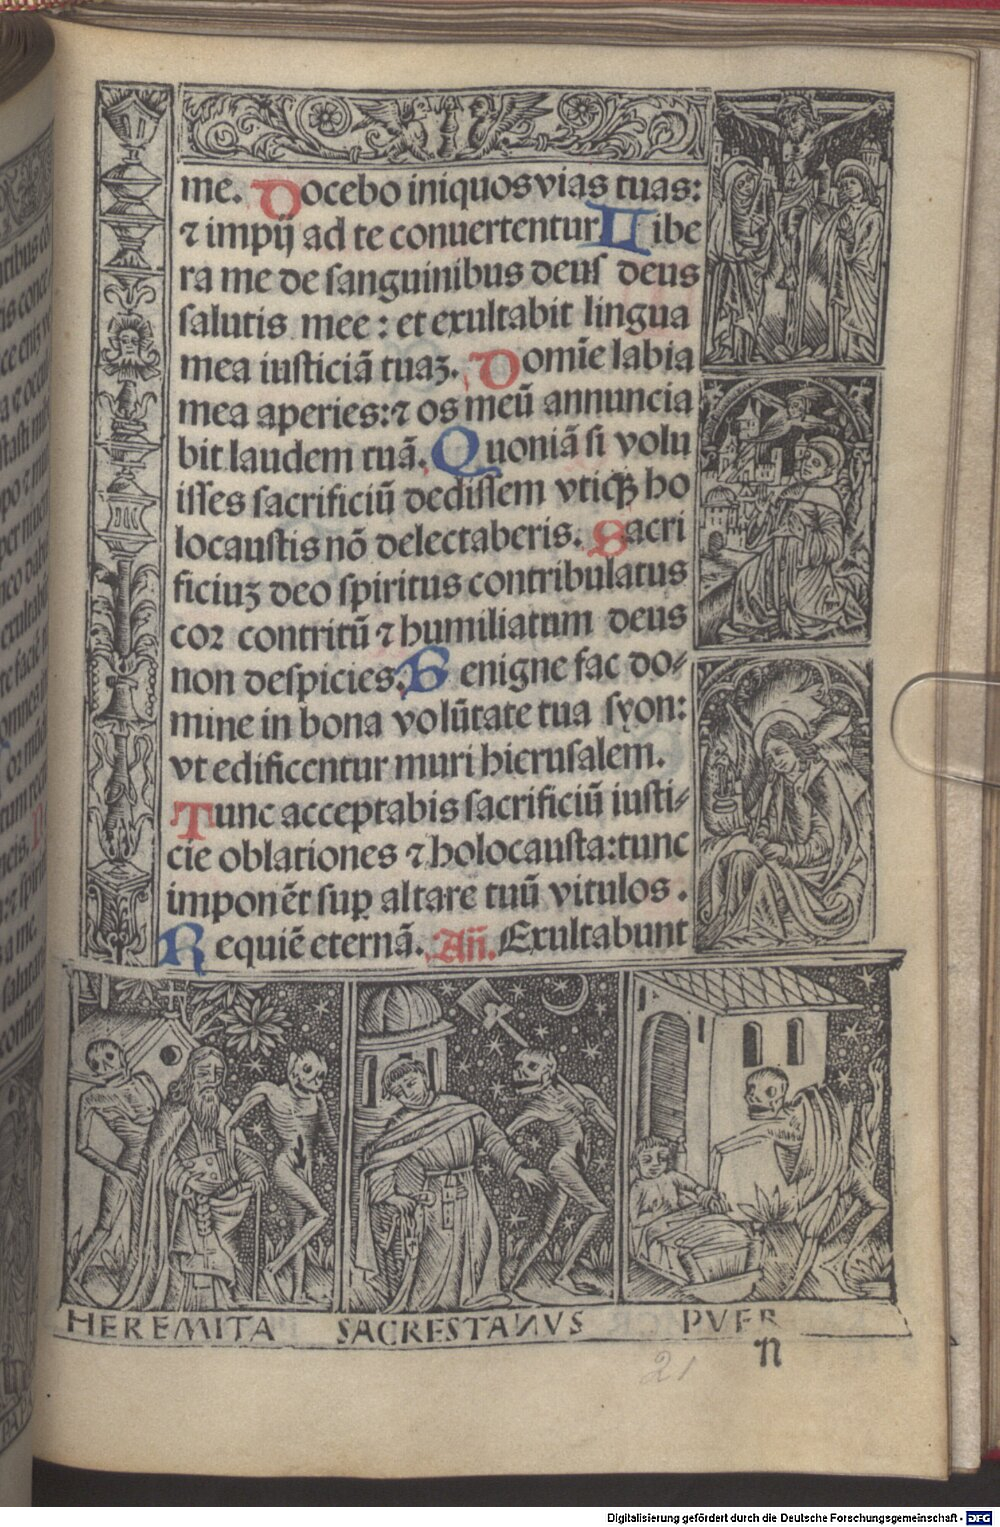 me. Docebo iniquos vias tuas:
⁊ impij ad te conuertentur Libe
ra me de sanguinibus deus deus
salutis mee: et exultabit lingua
mea iusticiã tuaꝫ. Domĩe labia
mea aperies: ⁊ os meũ annuncia
bit laudem tuã. Quoniã si volu
isses sacrificiũ dedissem vtiqꝫ ho
locaustis nõ delectaberis. Sacri
ficiuꝫ deo spiritus contribulatus
coꝛ contritũ ⁊ humiliatum deus
non despicies. Benigne fac do⸗
mine in bona volũtate tua syon:
vt edificentur muri hierusalem.
Tunc acceptabis sacrificiũ iusti⸗
cie oblationes ⁊ holocausta: tunc
imponẽt suꝑ altare tuũ vitulos.
Requiẽ eternã. Añ. Exultabunt
HEREMITA SACRESTANVS PVER
n
21
Digitalisierung gefördert durch die Deutsche Forschungsgemeinschaft - DFG